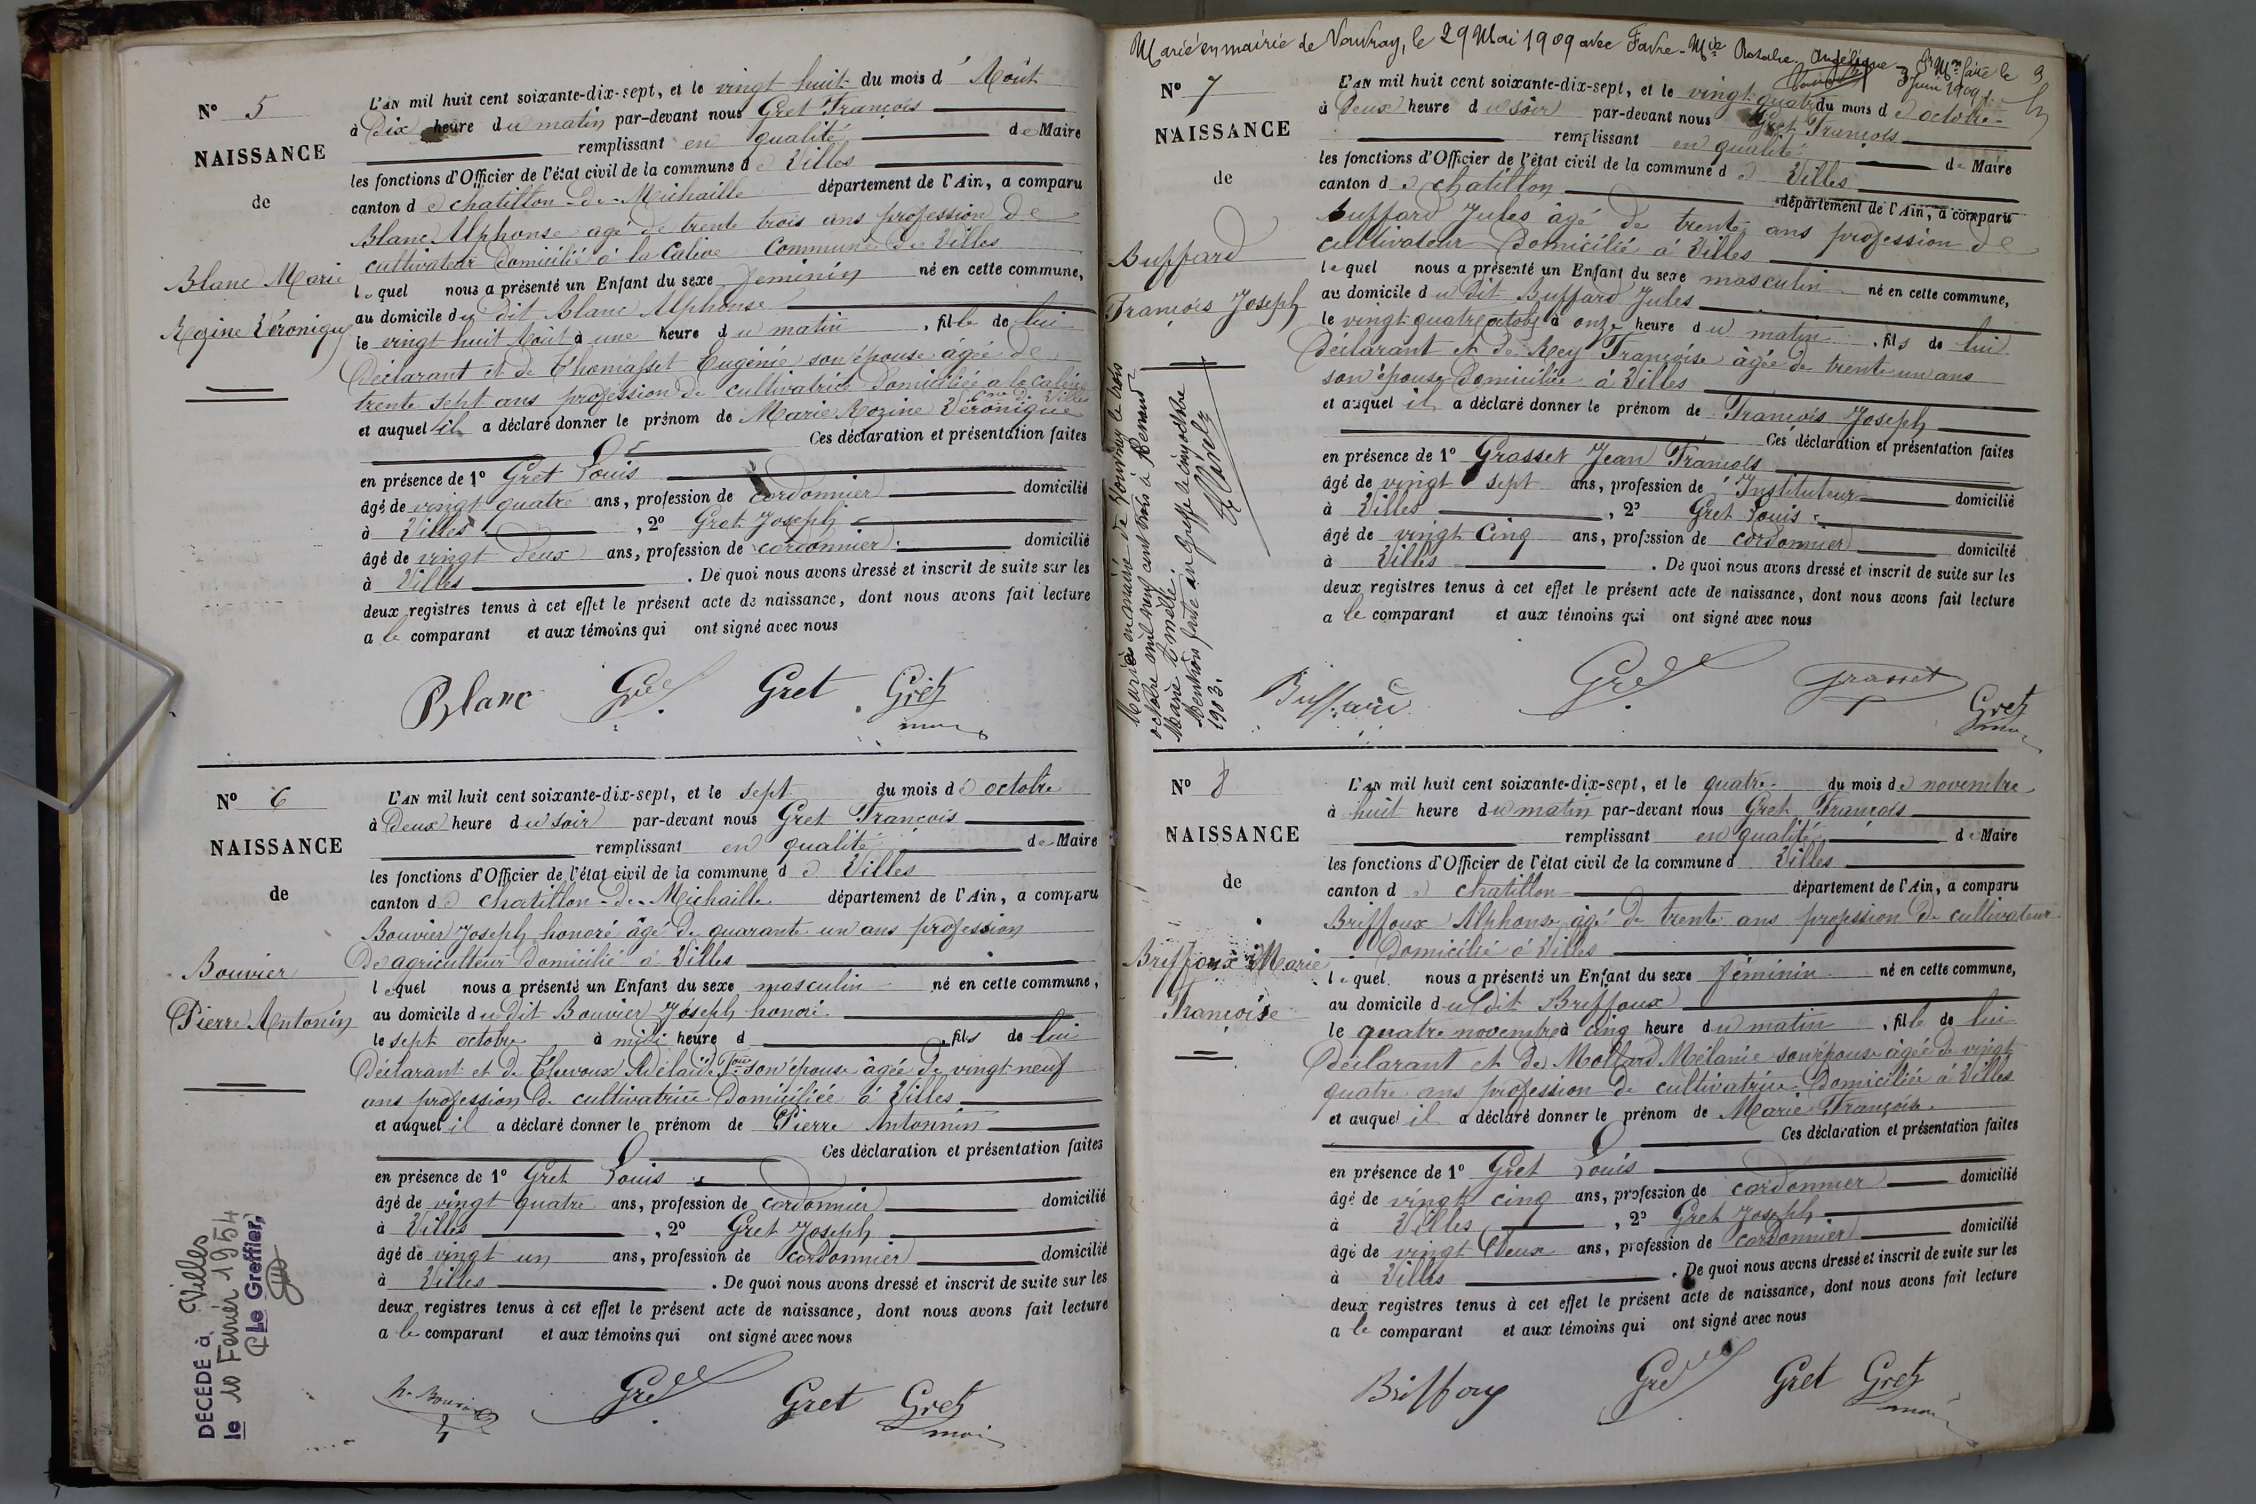 N° 5
NAISSANCE
de
Blanc Marie
Rozine Véronique
L'AN mil huit cent soixante-dix-sept, et le vingt huit du mois d' Août
à Dix heure du matin par-devant nous Gret François
remplissant en qualité de Maire
les fonctions d'Officier de l'état civil de la commune de Villes
canton de chatillon-de-Michaille département de l'Ain, a comparu
Blanc Alphonse agé de trente trois ans profession de
cultivateur Domicilié à la Calive Commune de Villes
lequel nous a présenté un Enfant du sexe feminin né en cette commune,
au domicile du dit Blanc Alphonse
le vingt huit Août à une heure du matin, fille de lui
Déclarant et de Thomasset Eugénie son épouse âgée de
trente sept ans profession de cultivatrice Domiciliée a la calive cne de Villes
et auquel il a déclaré donner le prénom de Marie Rozine Véronique
Ces déclaration et présentation faites
en présence de 1° Gret Louis
âgé de vingt quatre ans, profession de cordonnier domicilié
à Villes, 2° Gret Joseph
âgé de vingt deux ans, profession de cordonnier domicilié
à Villes. De quoi nous avons dressé et inscrit de suite sur les
deux registres tenus à cet effet le présent acte de naissance, dont nous avons fait lecture
a le comparant et aux témoins qui ont signé avec nous
Blanc Gret Gret Gret
N° 6
NAISSANCE
de
Bouvier
Pierre Antonin
L'AN mil huit cent soixante-dix-sept, et le sept du mois de octobre
à Deux heure du soir par-devant nous Gret François
remplissant en qualité de Maire
les fonctions d'Officier de l'état civil de la commune de Villes
canton de chatillon-de-Michaille département de l'Ain, a comparu
Bouvier Joseph honoré âgé de quarante un ans profession
De agriculteur Domicilié à Villes
lequel nous a présenté un Enfant du sexe masculin né en cette commune,
au domicile du dit Bouvier Joseph honoré
le sept octobre à midi heure d, fils de lui
Déclarant et de Adélaïde son épouse âgée de vingt neuf
ans profession de cultivatrice Domiciliée à Villes
et auquel il a déclaré donner le prénom de Pierre Antonnin
Ces déclaration et présentation faites
en présence de 1° Gret Louis
âgé de vingt quatre ans, profession de cordonnier domicilié
à Villes, 2° Gret Joseph
âgé de vingt un ans, profession de cordonnier domicilié
à Villes. De quoi nous avons dressé et inscrit de suite sur les
deux registres tenus à cet effet le présent acte de naissance, dont nous avons fait lecture
a le comparant et aux témoins qui ont signé avec nous
h. Bouvier Gret Gret Gret
DÉCÉDÉ à Villes
le 10 Février 1954
Le Greffier,
Marié en mairie de Vouvray, le 29 Mai 1909 avec Favre Mie Rosalie Angélique
Mon faite le
3 Juin 1909
N° 7
NAISSANCE
de
Buffard
François Joseph
Marié en mairie de Vouvray le trois
octobre mil neuf cent trois à Renaud
Marie
Mention faite au Greffe le cinq octobre
1903.
L'AN mil huit cent soixante-dix-sept, et le vingt quatre du mois de octobre
à Deux heure du soir par-devant nous Gret François
remplissant en qualité de Maire
les fonctions d'Officier de l'état civil de la commune de Villes
canton de chatillon département de l'Ain, a comparu
Buffard Jules âgé de trente ans profession de
cultivateur Domicilié à Villes
lequel nous a présenté un Enfant du sexe masculin né en cette commune,
au domicile du dit Buffard Jules
le vingt quatre octobre à onze heure du matin, fils de lui
Déclarant et de Rey Françoise âgée de trente un ans
son épouse Domiciliée à Villes
et auquel il a déclaré donner le prénom de François Joseph
Ces déclaration et présentation faites
en présence de 1° Grasset Jean François
âgé de vingt sept ans, profession de Instituteur domicilié
à Villes, 2° Gret Louis
âgé de vingt cinq ans, profession de cordonnier domicilié
à Villes. De quoi nous avons dressé et inscrit de suite sur les
deux registres tenus à cet effet le présent acte de naissance, dont nous avons fait lecture
a le comparant et aux témoins qui ont signé avec nous
Buffard Gret Grasset Gret
N° 8
NAISSANCE
de
Briffoux Marie
Françoise
L'AN mil huit cent soixante-dix-sept, et le quatre du mois de novembre
à huit heure du matin par-devant nous Gret François
remplissant en qualité de Maire
les fonctions d'Officier de l'état civil de la commune d Villes
canton de chatillon département de l'Ain, a comparu
Briffoux Alphonse âgé de trente ans profession de cultivateur
Domicilié à Villes
lequel nous a présenté un Enfant du sexe féminin né en cette commune,
au domicile du dit Briffoux
le quatre novembre à cinq heure du matin, fille de lui
Déclarant et de Mollard Mélanie son épouse âgée de vingt
quatre ans profession de cultivatrice Domiciliée à Villes
et auquel il a déclaré donner le prénom de Marie Françoise
Ces déclaration et présentation faites
en présence de 1° Gret Louis
âgé de vingt cinq ans, profession de cordonnier domicilié
à Villes, 2° Gret Joseph
âgé de vingt Deux ans, profession de cordonnier domicilié
à Villes. De quoi nous avons dressé et inscrit de suite sur les
deux registres tenus à cet effet le présent acte de naissance, dont nous avons fait lecture
a le comparant et aux témoins qui ont signé avec nous
Briffoux Gret Gret Gret